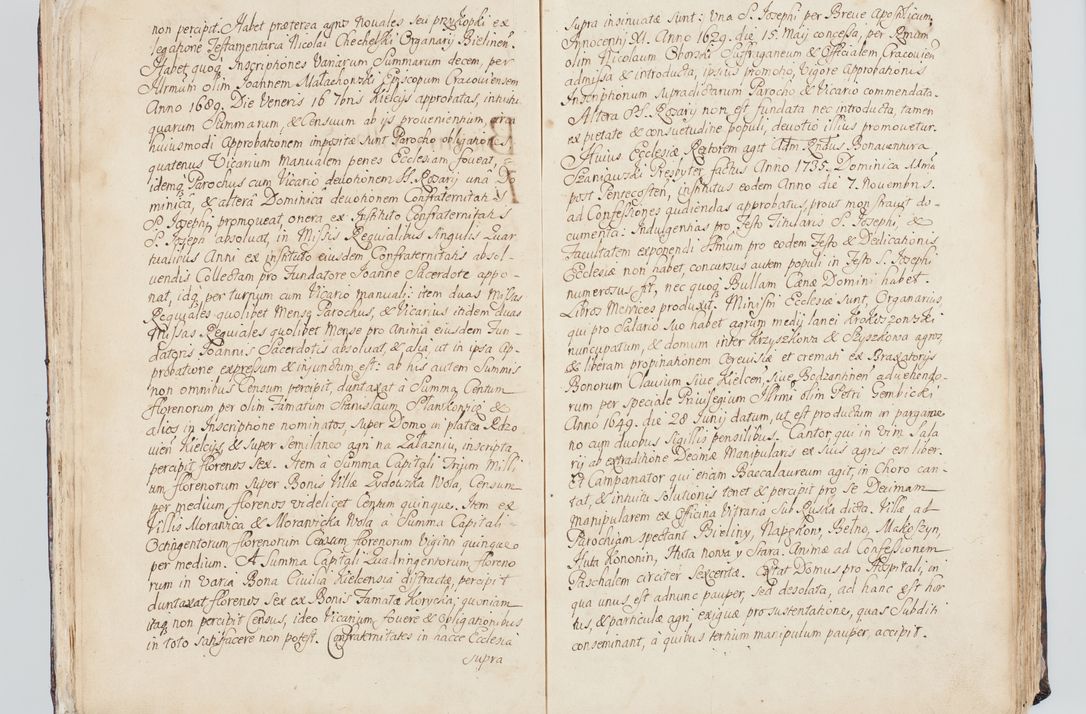 non percipit. Habet præterea agros Novales seu przykopki ex
legatione Testamentaria Nicolai Chechelski Organarij Bielinen
Habet quoq Inscriptiones Variarum Summarum decem, per
Illrmum olim Joannem Małachowski Episcopum Cracoviensem
Anno 1689. Die Veneris 16 7bris Kielcijs approbatas, intuitu
quarum Summarum, & Censuum ab ijs provenientium, circa
huiusmodi Approbationem imposita sunt Parocho obligationes
quatenus Vicarium Manualem penes Ecclesiam foveat,
idemq Parochus cum Vicario devotionem SS. Rosarij unâ Do
minica, & alterâ Dominica devotionem Confraternitatis
S. Josephi promoveat, onera ex Instituto Confraternitatis
S. Joseph absolvat, in Missis Requialibus singulis Quar
tualibus Anni ex instituto eiusdem Confraternitatis absol
vendis Collectam pro Fundatore Joanne Sacerdote appo
nat, idq per turnum cum Vicario manuali: item duas Missas
Requiales quolibet Mense Parochus, & Vicarius itidem duas
Missas Requiales quolibet Mense pro Anima eiusdem Fun
datoris Joannis Sacerdotis absolvat, & alia ut in ipsa Ap
probatione expressum & injunctum est: ab his autem Summis
non omnibus Censum percipit, duntaxat à Summa Centum
florenorum per olim Famatum Stanislaum &
alios in Inscriptione nominatos, super Domo in platea
Kielcijs, & super Semilaneo agri na Zalazniu, inscripta
percipit florenos sex. Item à Summa Capitali Trium Milli
um florenorum super Bonis Villæ Zydowska Wola, Censum
per medium florenos videlicet Centum quinque. Item ex
Villis Morawica & Morawicka Wola à Summa Capitali
Octingentorum florenorum Censum florenorum Viginti quinque
per medium. A Summa Capitali Quadringentorum floreno
rum in Varia Bona Civilia Kielcensia distracta, percipit
duntaxat florenos sex ex Bonis Famatæ Korycka; quoniam
itaq non percipit Census, ideo Vicarium fovere & Obligationibus
in toto satisfacere non potest. Confraternitates in hacce Ecclesia
supra
supra insinuatæ sunt: Una S. Josephi per Breve Apostlicum
Innocentij XI. Anno 1629. die 15. Maij concessa, per Rmum
olim Nicolaum Oborski Suffraganeum & Officialem Cracovien
admissa & introducta, ipsius promotio, Vigore Approbationis
Inscriptionum supradictarum Parocho & Vicario commendata.
Altera SS. Rosarij non est fundata nec introducta, tamen
ex pietate & consuetudine populi, devotio illius promovetur.
Huius Ecclesiæ Rectorem agit Adm. Rndus Bonaventura
Szaniawski Presbyter factus Anno 1735. Dominica
post Pentecosten, institutus eodem Anno die 7. Novembris.
ad Confessiones audiendas approbatus, prout monstravit do
cumenta: Indulgentias pro Festo Titularis S. Josephi, &
Facultatem exponendi Ssmum pro eodem Festo & Dedicationis
Ecclesiæ non habet, concursus autem populi in Festo S. Josephi
numerosus fit, nec quoq Bullam Cænæ Domini habet.
Libros Metrices produxit. Ministri Ecclesiæ sunt, Organarius,
qui pro Salario suo habet agrum medij lanei Krokoszonski
nuncupatum, & domum inter Krzyszkowa & Szyszkowa agros,
& liberam propinationem Cerevisiæ et cremati ex Braxatorijs
Bonorum Clavium sive Kielcen, sive Bodzantinen advehendo
rum per speciale Privilegium Illrmi olim Petri Gembicki
Anno 1649. die 28 Junij datum, ut est productum in pargame
no cum duobus sigillis pensilibus. Cantor, qui in Vim Sala
rij ab extraditione Decimæ Manipularis ex suis agris est liber.
Et Campanator qui etiam Baccalaureum agit, in Choro can
tat, & intuitu solutionis tenet & percipit pro se Decimam
Manipularem ex Officina Vitraria sub Huska dicta. Villæ ad
Parochiam spectant Bieliny, Napękow, Belno, Makoszyn,
Huta Kononin, Huta nowa y Stara. Animæ ad Confessionem
Paschalem circiter Sexcentæ. Extat Domus pro Hospitali, in
qua unus est adnunc pauper, sed desolata, ad hanc est hor
tus, & particulæ agri exiguæ pro sustentatione, quas Subditi
conseminant, à quibus tertium manipulum pauper, accipit.